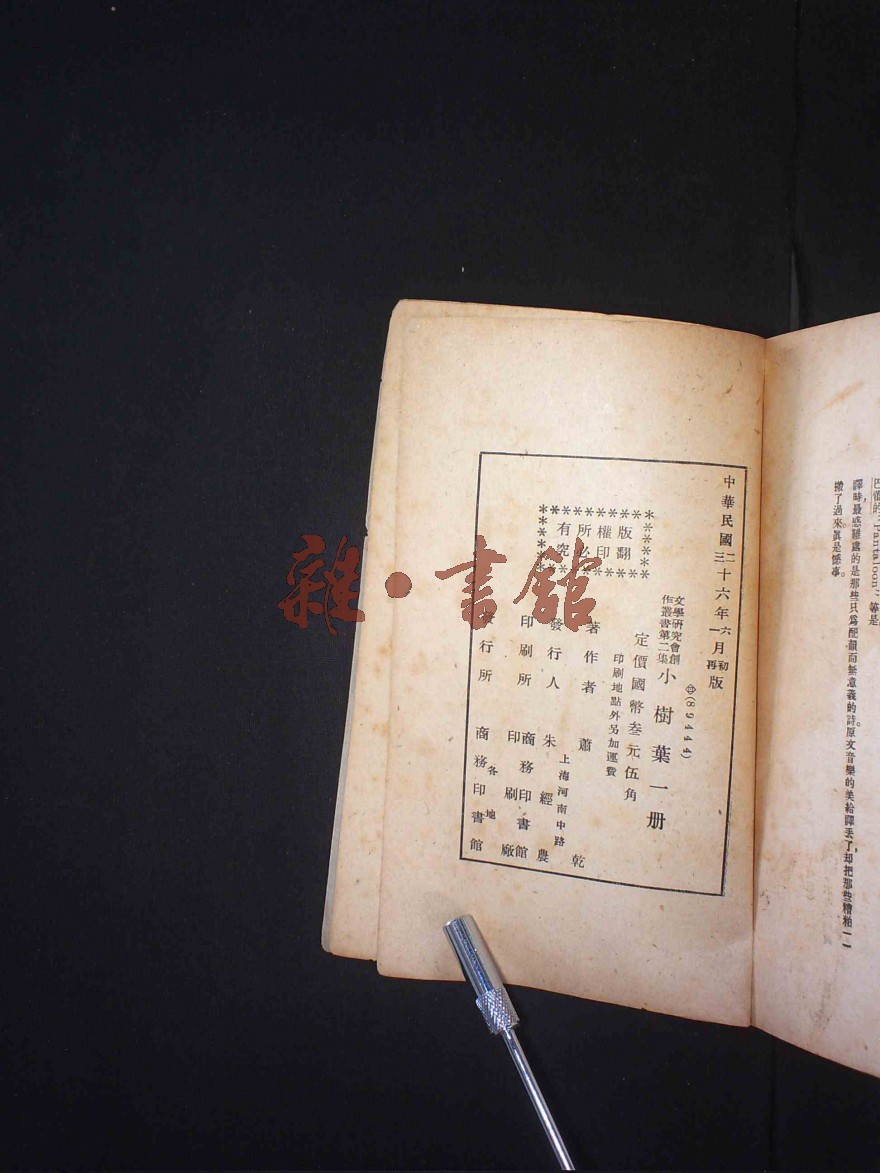 巴蕾的“Pantaloon”等是
譯時,最感難處的是那些只爲配韻而無意義的詩。原文音樂的美給譯丟了,却把那些糟粕一一
搬了過來,眞是憾事。
中華民國二十六年六月初版
三十六年一月再版
㊥(89444)
文學研究會創
作叢書第二集
小樹葉一册
定價國幣叁元伍角
印刷地點外另加運費
版權所有
翻印必究
著作者 蕭乾
上海河南中路
發行人 朱經農
印刷所 商務印書館
印刷廠
各地
發行所 商務印書館
雜·書館